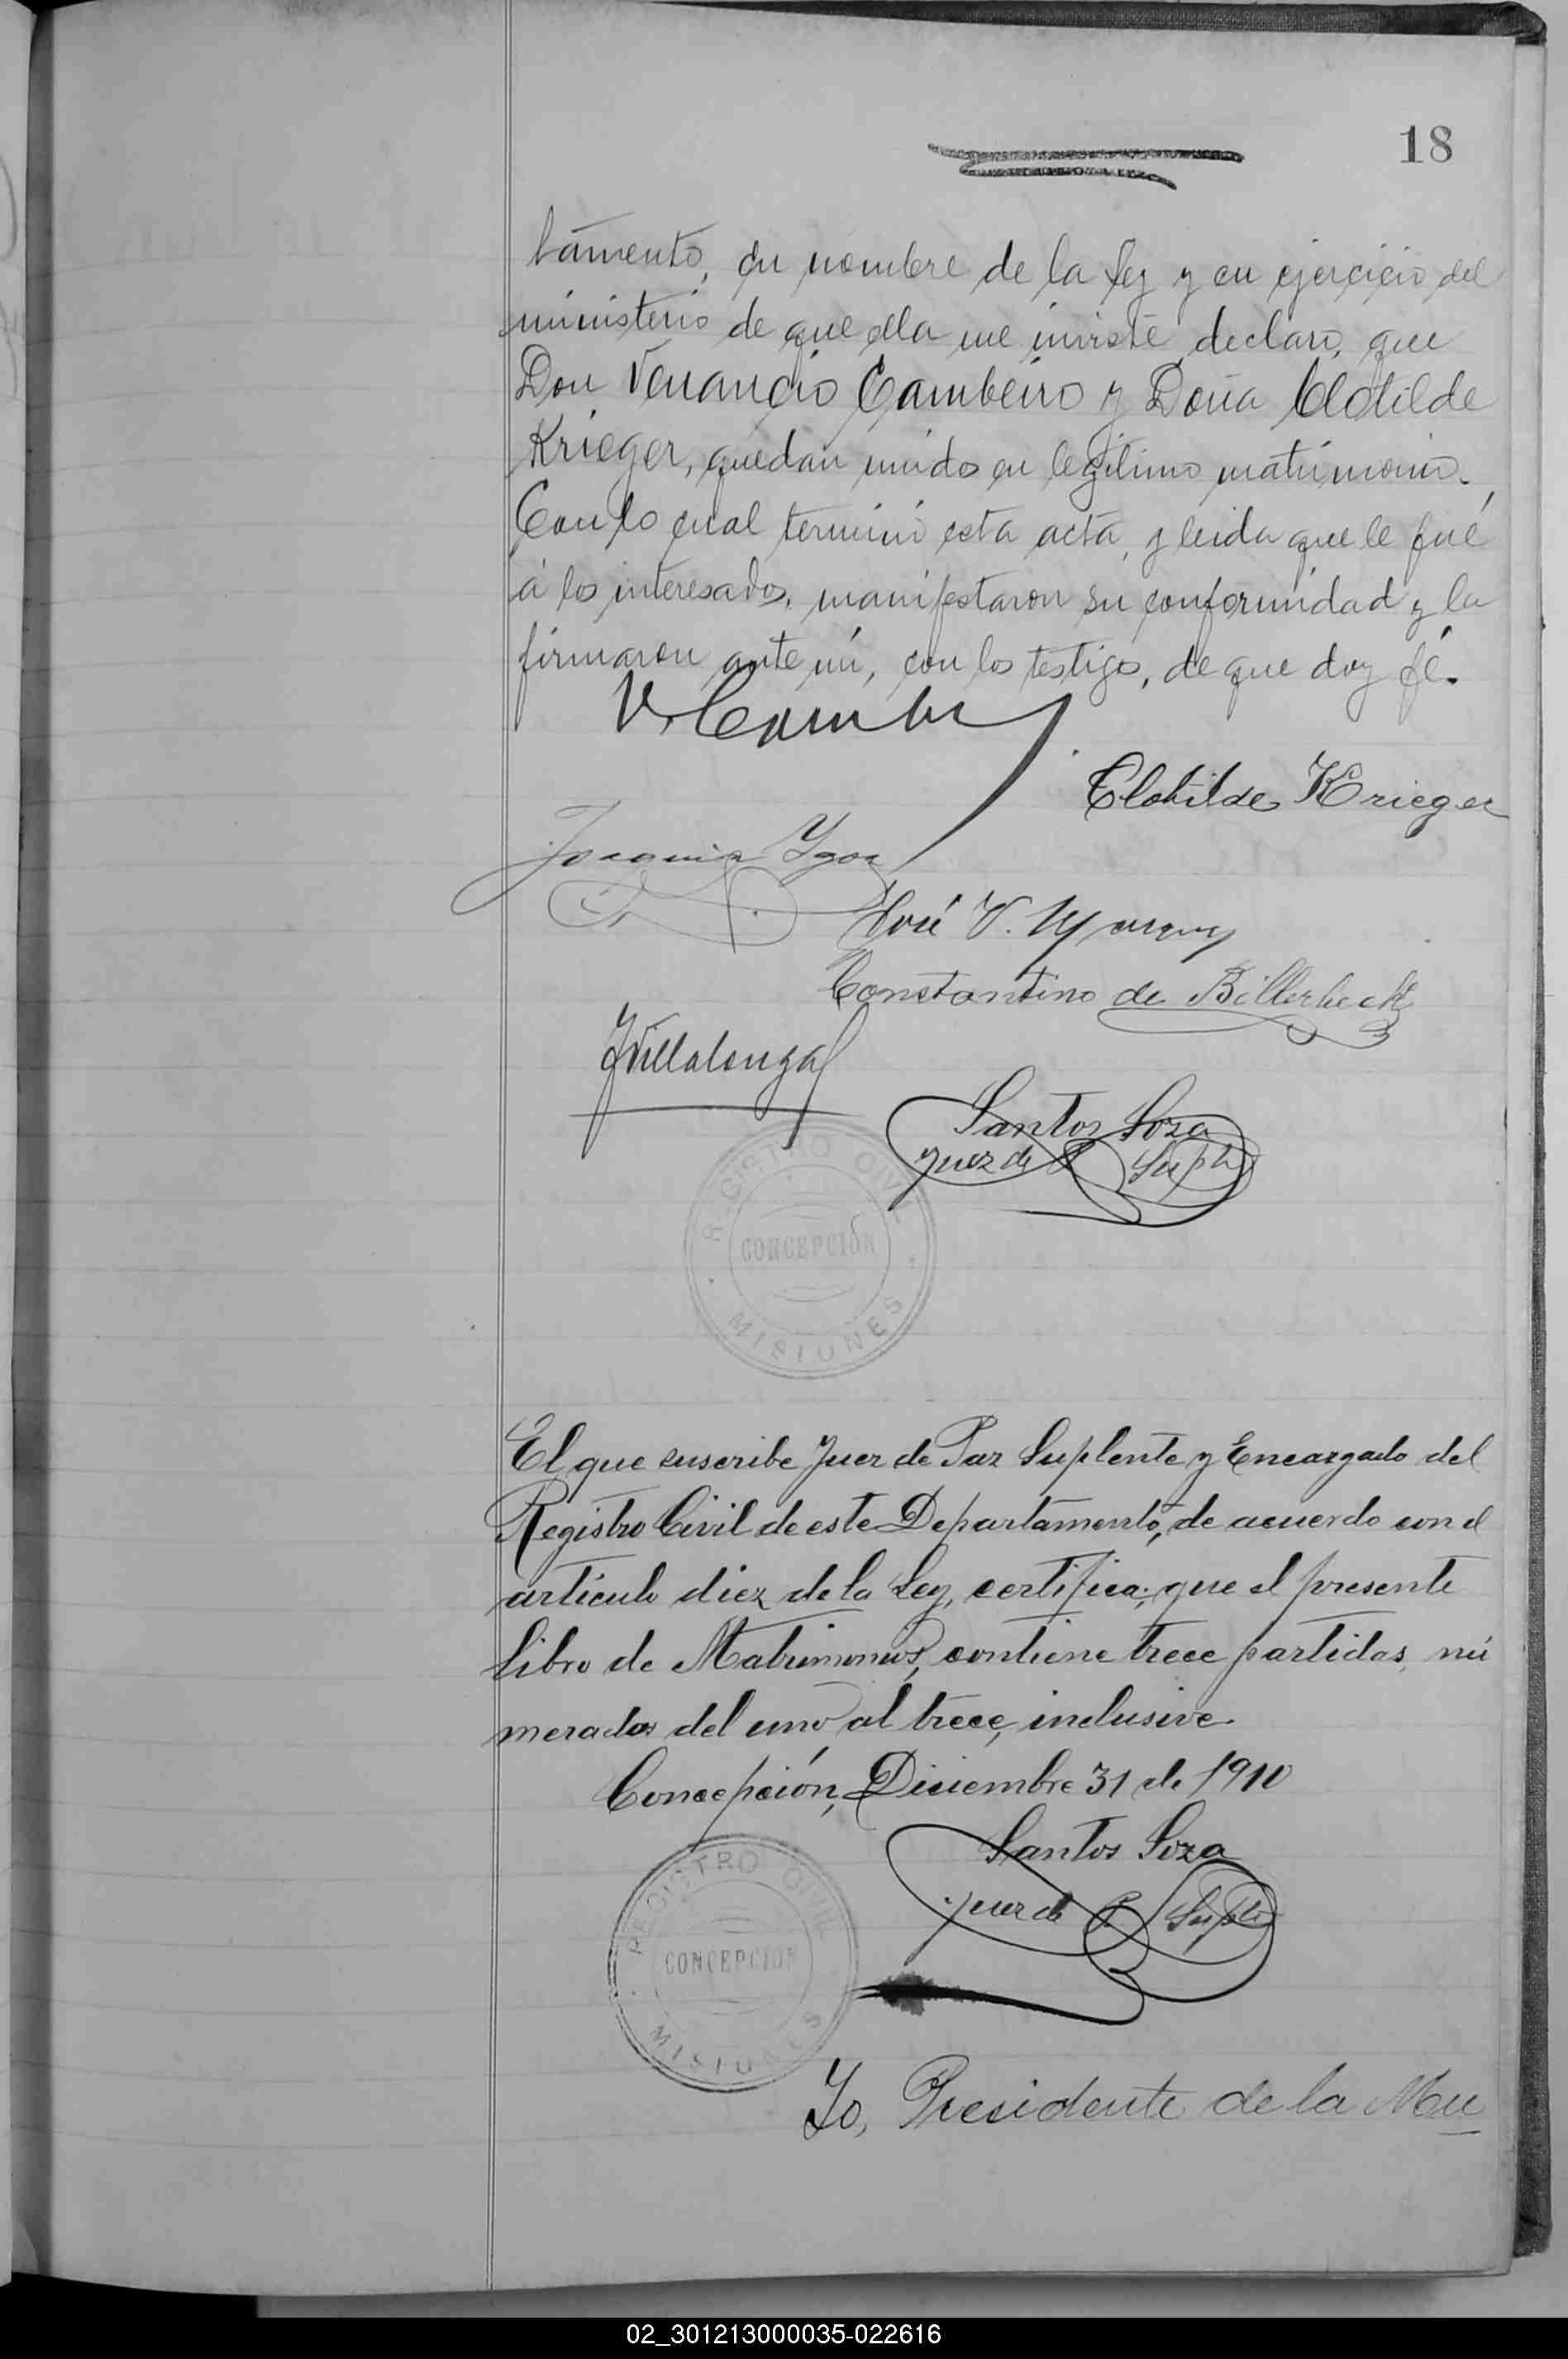 18
tamento, en nombre de la ley y en ejercicio del
ministerio de que ella me inviste declaro, que
Don Venancio Cambeiro y Doña Clotilde
Krieger, quedan unidos en legítimo matrimonio.
Con lo cual terminó esta acta, y leida que le fué
á los interesados, manifestaron su conformidad y la
firmaron ante mí, con los testigos, de que doy fé.
Clotilde Krieger
José V.
Constantino de Billerbeck
JVillalonga
Santos Soza
Juez de P Suplte
REGISTRO CIVIL
CONCEPCIÓN
MISIONES
El que suscribe Juez de Paz Suplente y Encargado del
Registro Civil de este Departamento, de acuerdo con el
artículo diez de la Ley, certifica; que el presente
libro de Matrimonios, contiene trece partidas, nú
meradas del uno al trece, inclusive.
Concepción, Diciembre 31 de 1910
Santos Soza
juez de P Suplte
REGISTRO CIVIL
CONCEPCIÓN
MISIONES
Yo, Presidente de la Mu
02_301213000035-022616